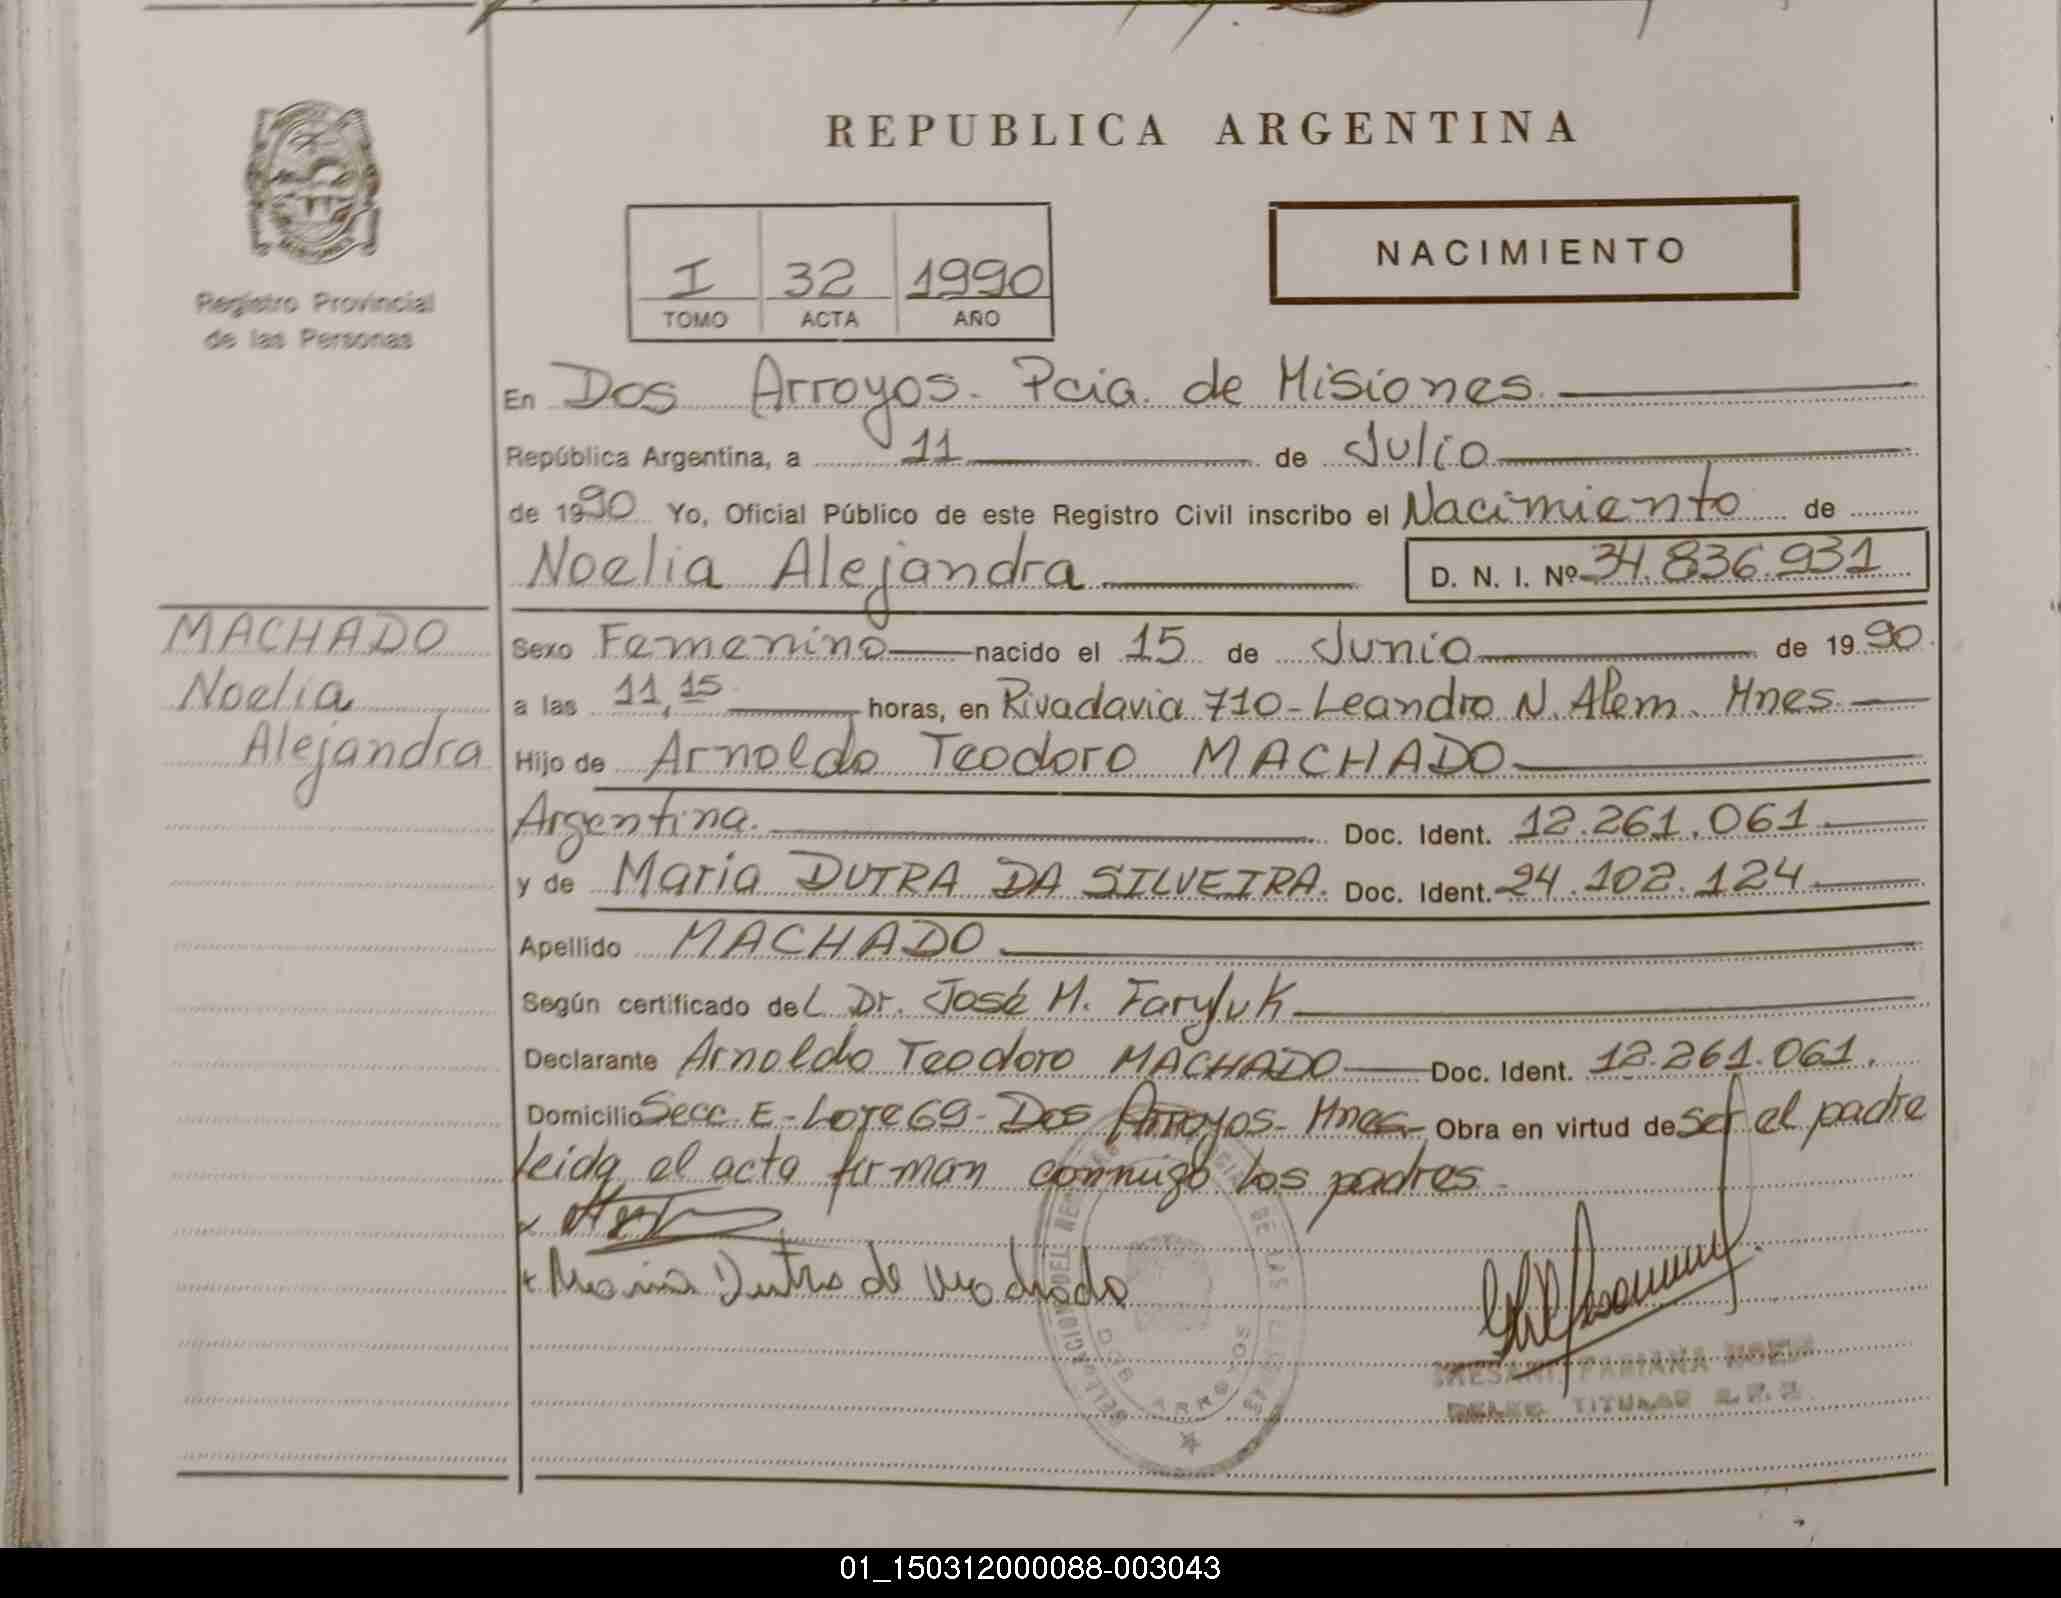 REPUBLICA ARGENTINA
Registro Provincial
de las Personas
I 32 1990
TOMO ACTA AÑO
NACIMIENTO
En Dos Arroyos. Pcia. de Misiones.
República Argentina, a 11 de Julio
de 1990 Yo, Oficial Público de este Registro Civil inscribo el Nacimiento de
Noelia Alejandra D. N. I. Nº 34.836.931
MACHADO
Noelia
Alejandra
Sexo Femenino nacido el 15 de Junio de 1990.
a las 11,15 horas, en Rivadavia 710-Leandro N. Alem. Mnes.
Hijo de Arnoldo Teodoro MACHADO
Argentina. Doc. Ident. 12.261.061
y de Maria DUTRA DA SILVEIRA. Doc. Ident. 24.102.124
Apellido MACHADO
Según certificado del Dr. José M. Faryluk
Declarante Arnoldo Teodoro MACHADO Doc. Ident. 12.261.061.
Domicilio Secc. E-Lote 69-Dos Arroyos-Mnes- Obra en virtud de ser el padre
leida el acta firman conmigo los padres.
x
x Maria Dutra de Machado
DOS ARROYOS
FABIANA NOEMI
DELEG. TITULAR R.P.P.
01_150312000088-003043